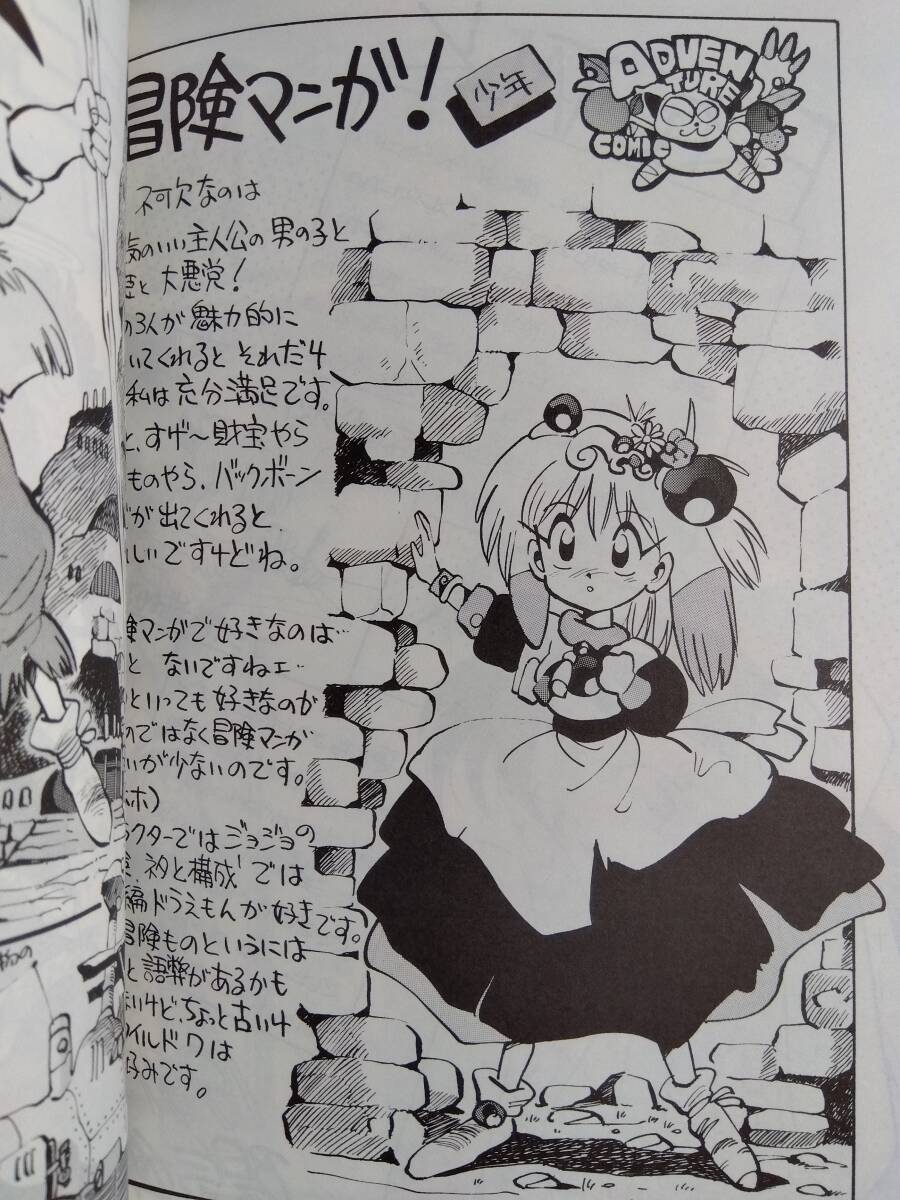 冒険マンガ!
少年
ADVENTURE
COMIC
不可欠なのは
気のいい主人公の男の子と
と 大悪党!
3人が魅力的に
いてくれると それだ4
私は充分満足です。
と、すげ〜財宝やら
ものやら、バックボーン
が出てくれると
しいです4どね。
険マンガで好きなのは…
と ないですねェ…
といっても好きなのが
のではなく冒険マンガ
いが少ないのです。
ホ)
ラクターではジョジョの
、ネタと構成では
編ドラえもんが好きです。
冒険ものというには
と語弊があるかも
ない4ど、ちょっと古い4
イルド7は
好みです。